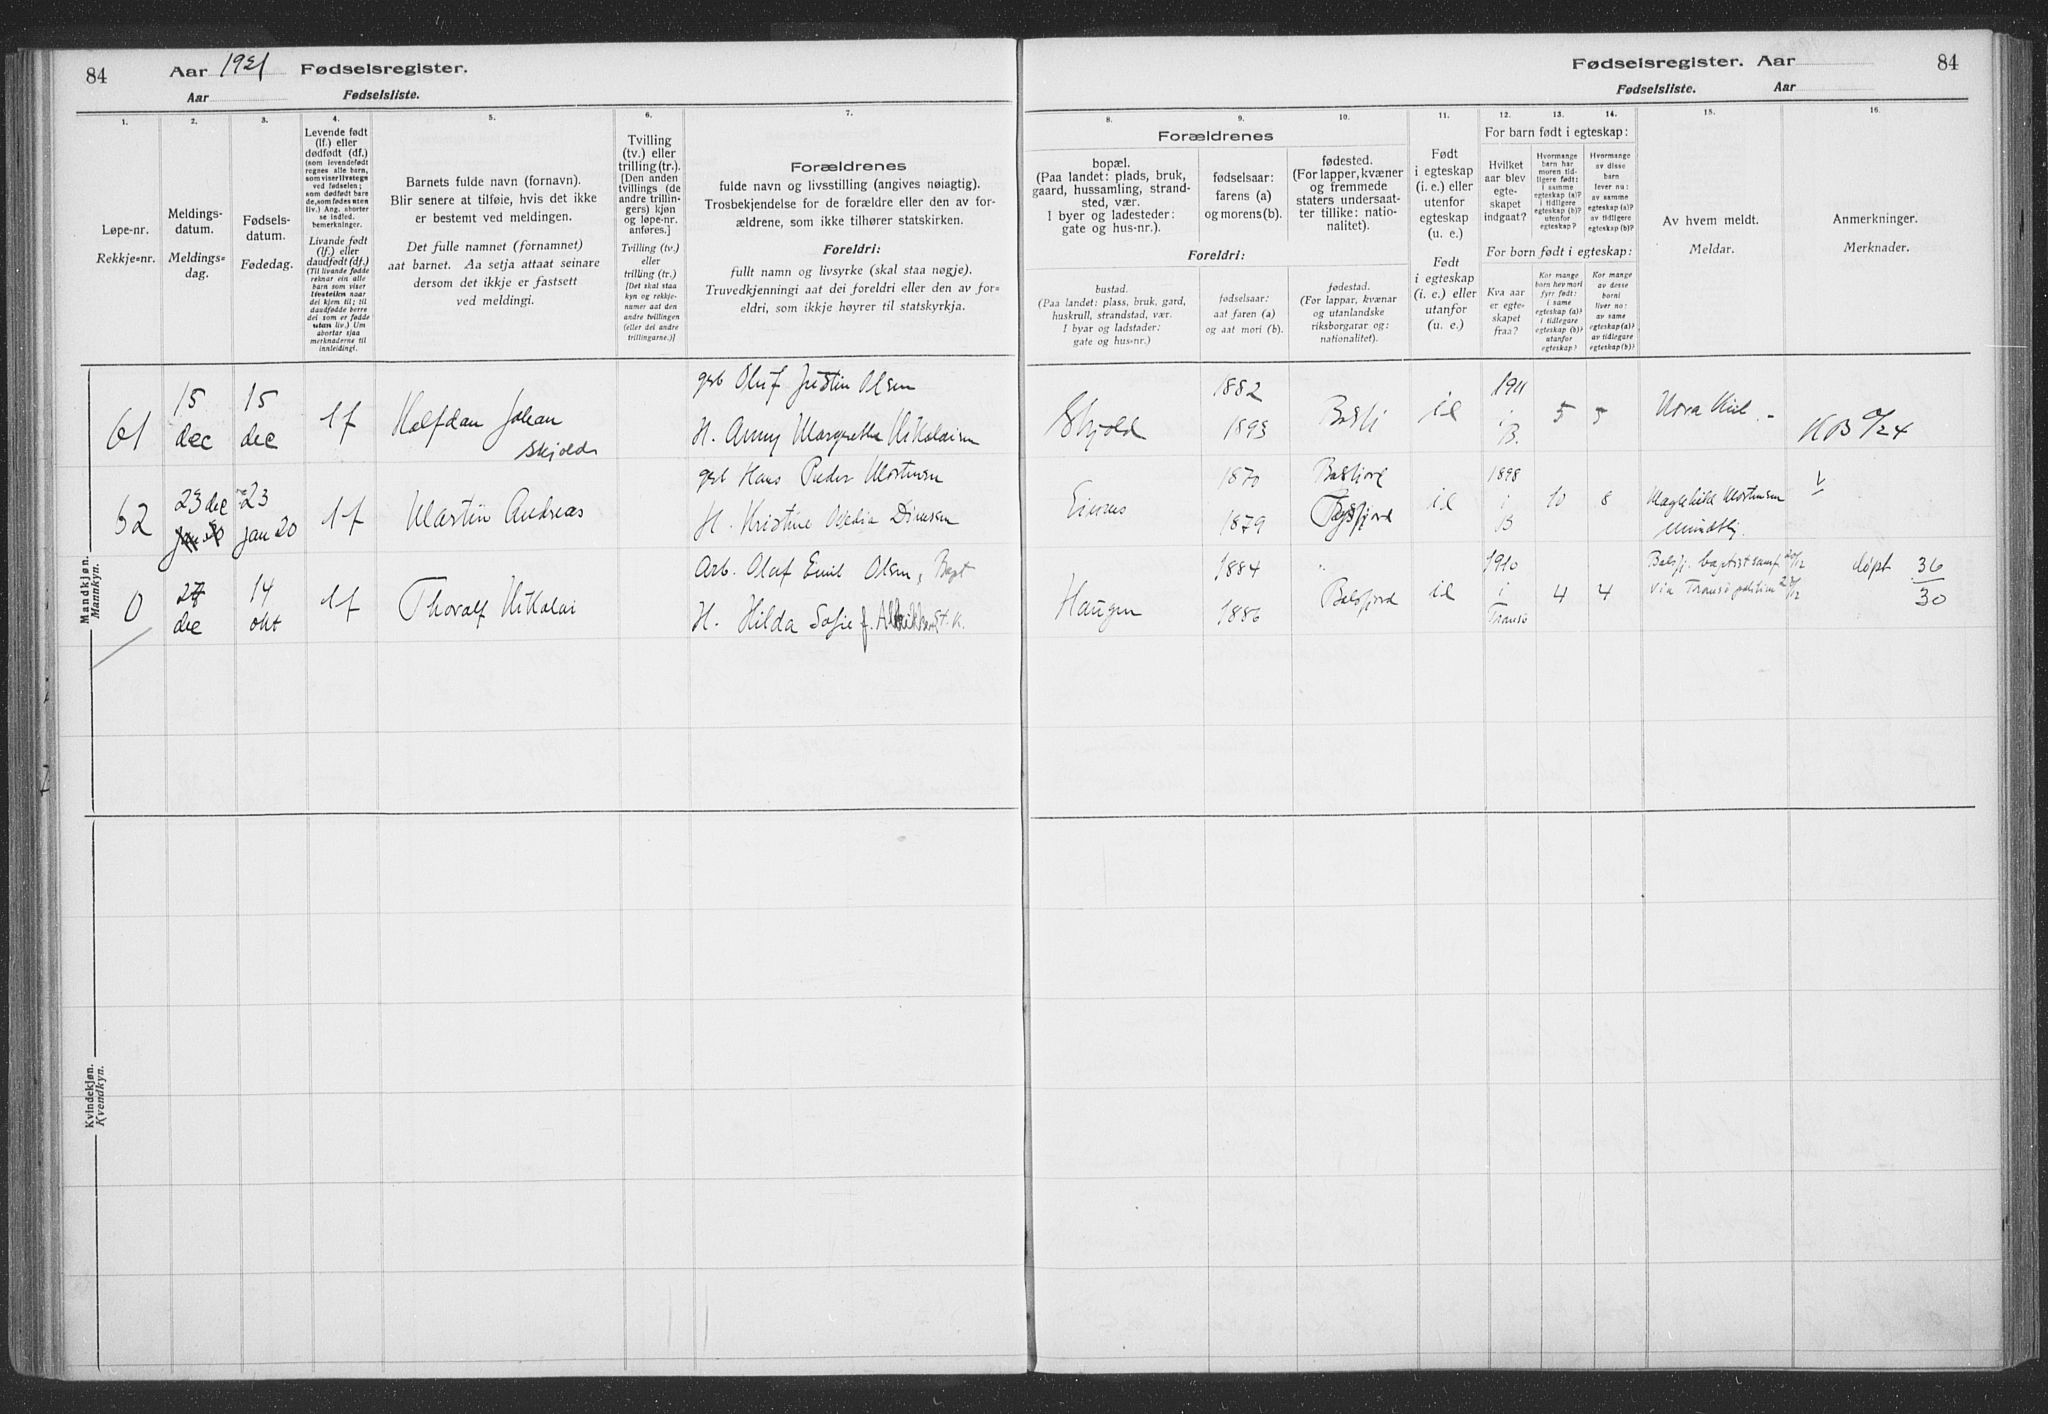 84 Aar 1921 Fødselsregister.
Aar Fødselsliste.
Fødselsregister. Aar 84
Fødselsliste. Aar
1.
Løpe-nr.
Rekkje-nr.
2.
Meldings-
datum.
Meldings-
dag.
3.
Fødsels-
datum.
Fødedag.
4.
Levende født
(lf.) eller
dødfødt (df.)
(som levendefødt
regnes alle barn,
som viser livstegn
ved fødselen;
som dødfødt bare
de, som fødes uten
liv.) Ang. aborter
se indled.
bemerkninger.
Livande født
(lf.) eller
daudfødt (df.)
(Til livande fødde
reknar ein alle
barn som viser
livsteikn naar
dei kjem til; til
daudfødde berre
dei som er fødde
utan liv.) Um
abortar sjaa
merknaderne til
innleidingi.
5.
Barnets fulde navn (fornavn).
Blir senere at tilføie, hvis det ikke
er bestemt ved meldingen.
Det fulle namnet (fornamnet)
aat barnet. Aa setja attaat seinare
dersom det ikkje er fastsett
ved meldingi.
6.
Tvilling
(tv.) eller
trilling (tr.).
[Den anden
tvillings (de
andre trillin-
gers) kjøn
og løpe-nr.
anføres.]
Tvilling (tv.)
eller
trilling (tr.)
[Det skal staa
kyn og rekkje-
numer aat den
andre tvillingen
(eller dei andre
trillingarne.)]
7.
Forældrenes
fulde navn og livsstilling (angives nøiagtig).
Trosbekjendelse for de forældre eller den av for-
ældrene, som ikke tilhører statskirken.
Foreldri:
fullt namn og livsyrke (skal staa nøgje).
Truvedkjenningi aat dei foreldri eller den av for-
eldri, som ikkje høyrer til statskyrkja.
8.
Forældrenes
bopæl.
(Paa landet: plads, bruk,
gaard, hussamling, strand-
sted, vær.
I byer og ladesteder:
gate og hus-nr.).
Foreldri:
bustad.
(Paa landet: plass, bruk, gard,
huskrull, strandstad, vær.
I byar og ladstader:
gate og hus-nr.)
9.
fødselsaar:
farens (a)
og morens (b).
fødselsaar:
aat faren (a)
og aat mori (b).
10.
fødested.
(For lapper, kvæner
og fremmede
staters undersaat-
ter tillike: natio-
nalitet).
fødestad.
(For lappar, kvænar
og utanlandske
riksborgarar og:
nationalitet).
11.
Født
i egteskap
(i. e.) eller
utenfor
egteskap
(u. e.)
Født
i egteskap
(i. e.) eller
utanfor
(u. e.)
12. 13. 14.
For barn født i egteskap:
Hvilket
aar blev
egte-
skapet
indgaat?
Hvormange
barn har
moren tid-
ligere født:
i samme
egteskap (a)?
i tidligere
egteskap (b)?
utenfor
egteskap?
Hvormange
av disse
barn
lever nu:
av samme
egteskap (a)?
av tidligere
egteskap (b)?
For born født i egteskap:
Kva aar
er egte-
skapet
fraa?
Kor mange
born hev mori
fyrr født:
i same
egteskap (a)?
i tidlegare
egteskap (b)?
utanfor
egteskap?
Kor mange
av desse
borni
liver no:
av same
egteskap (a)?
av tidlegare
egteskap (b)?
15.
Av hvem meldt.
Meldar.
16.
Anmerkninger.
Merknader.
Mandkjøn.
Mannkyn.
61 15 dec 15 dec lf Halfdan Johan
Skjolds
gsb Oluf Justin Olsen
H. Anny Margrethe Nikolaisen
Skjold 1882 1893 Balsfj ie 1911 i B. 5 5 K B 24
62 23 dec 23 jan 20 lf Martin Andreas
gsb Hans Peder Mortensen
H. Kristine
1870 1879 Balsfjord ie 1898 i B 10 8 Mortensen
mundtlig
0 27 dec 14 okt lf Thoralf Nikolai
Arb. Olaf Emil Olsen, Bapt
H. Hilda Sofie f.
Haugen 1884 1886 " Balsfjord ie 1910 i Tromsø 4 4 Balsfj. baptistsamf 20/12
via Tromsø 28/12
døpt 36/30
Kvindekjøn.
Kvendkyn.